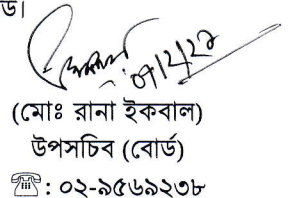 ড।
(মোঃ রানা ইকবাল)
উপসচিব (বোর্ড)
☎: ০২-৯৫৬৯২৩৮